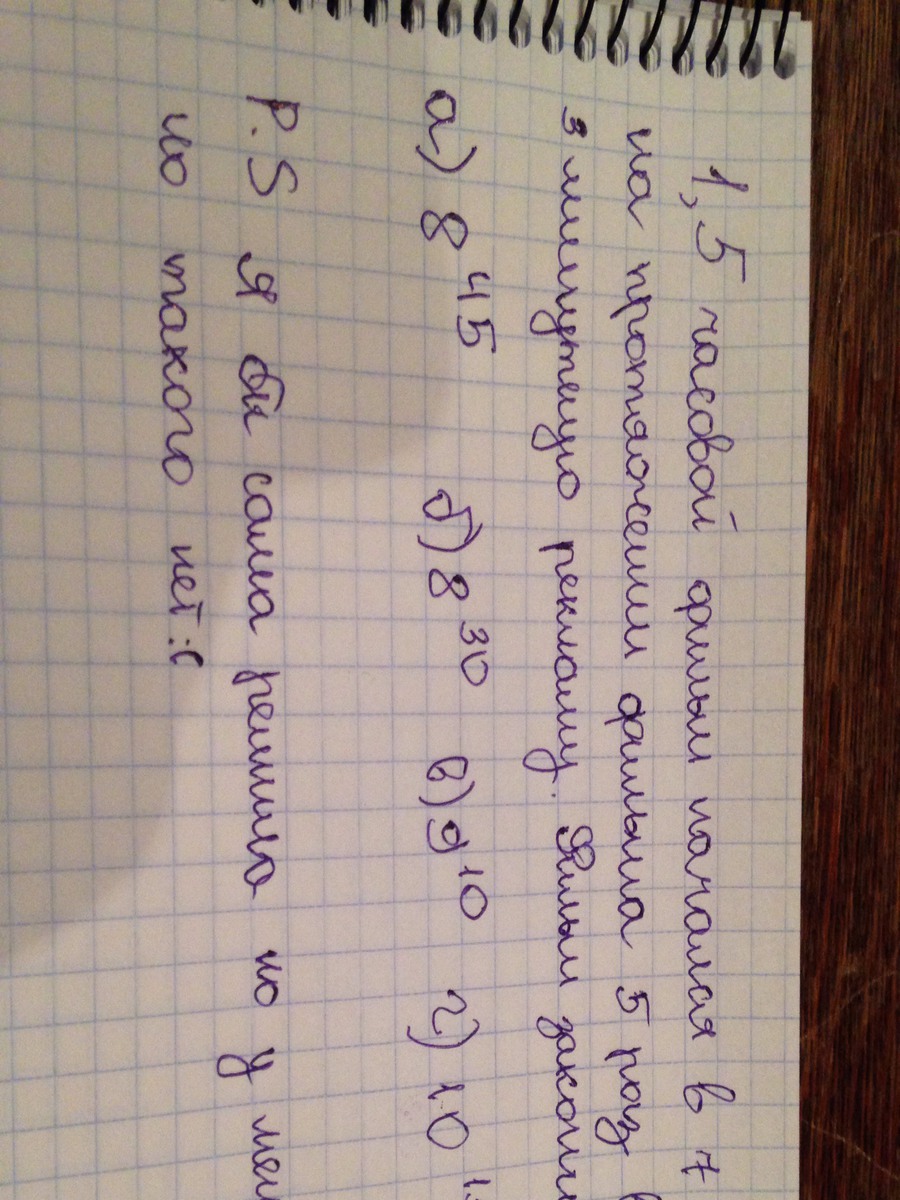 1,5 часовой фильм начался в 7
на протяжении фильма 5 раз
3 минутную рекламу. Фильм
а) 8 45 б) 8 30 в) 9 10 г) 10
P.S Я бы сама решила но у
но такого нет :(